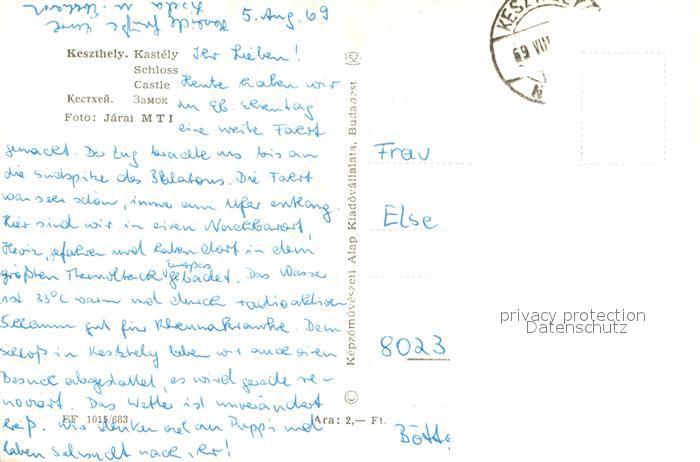 5. Aug. 69
Keszthely. Kastély
Schloss
Castle
Кестхей. Замок
Foto: Járai MTI
Ihr Lieben!
Heute haben wir
eine weite Fahrt
gemacht. Der Zug brachte uns bis an
die Südspitze des Balatons. Die Fahrt
war sehr schön, immer am Ufer entlang.
Hier sind wir in einen Nachbarort,
Heviz, gefahren und haben dort in dem
größten Thermalteich Europas gebadet. Das Wasser
ist 33°C warm und durch radioaktiven
Schlamm gut für Rheumakranke. Dem
Schloß in Keszthely haben wir auch einen
Besuch abgestattet, es wird gerade re-
noviert. Das Wetter ist unverändert
heiß. Wir denken viel an Puppi und
haben Sehnsucht nach ihr!
EF 1015/683
Ára: 2,— Ft.
Képzőművészeti Alap Kiadóvállalata, Budapest
KESZTHELY
69 VIII
Frau
Else
8023
privacy protection
Datenschutz